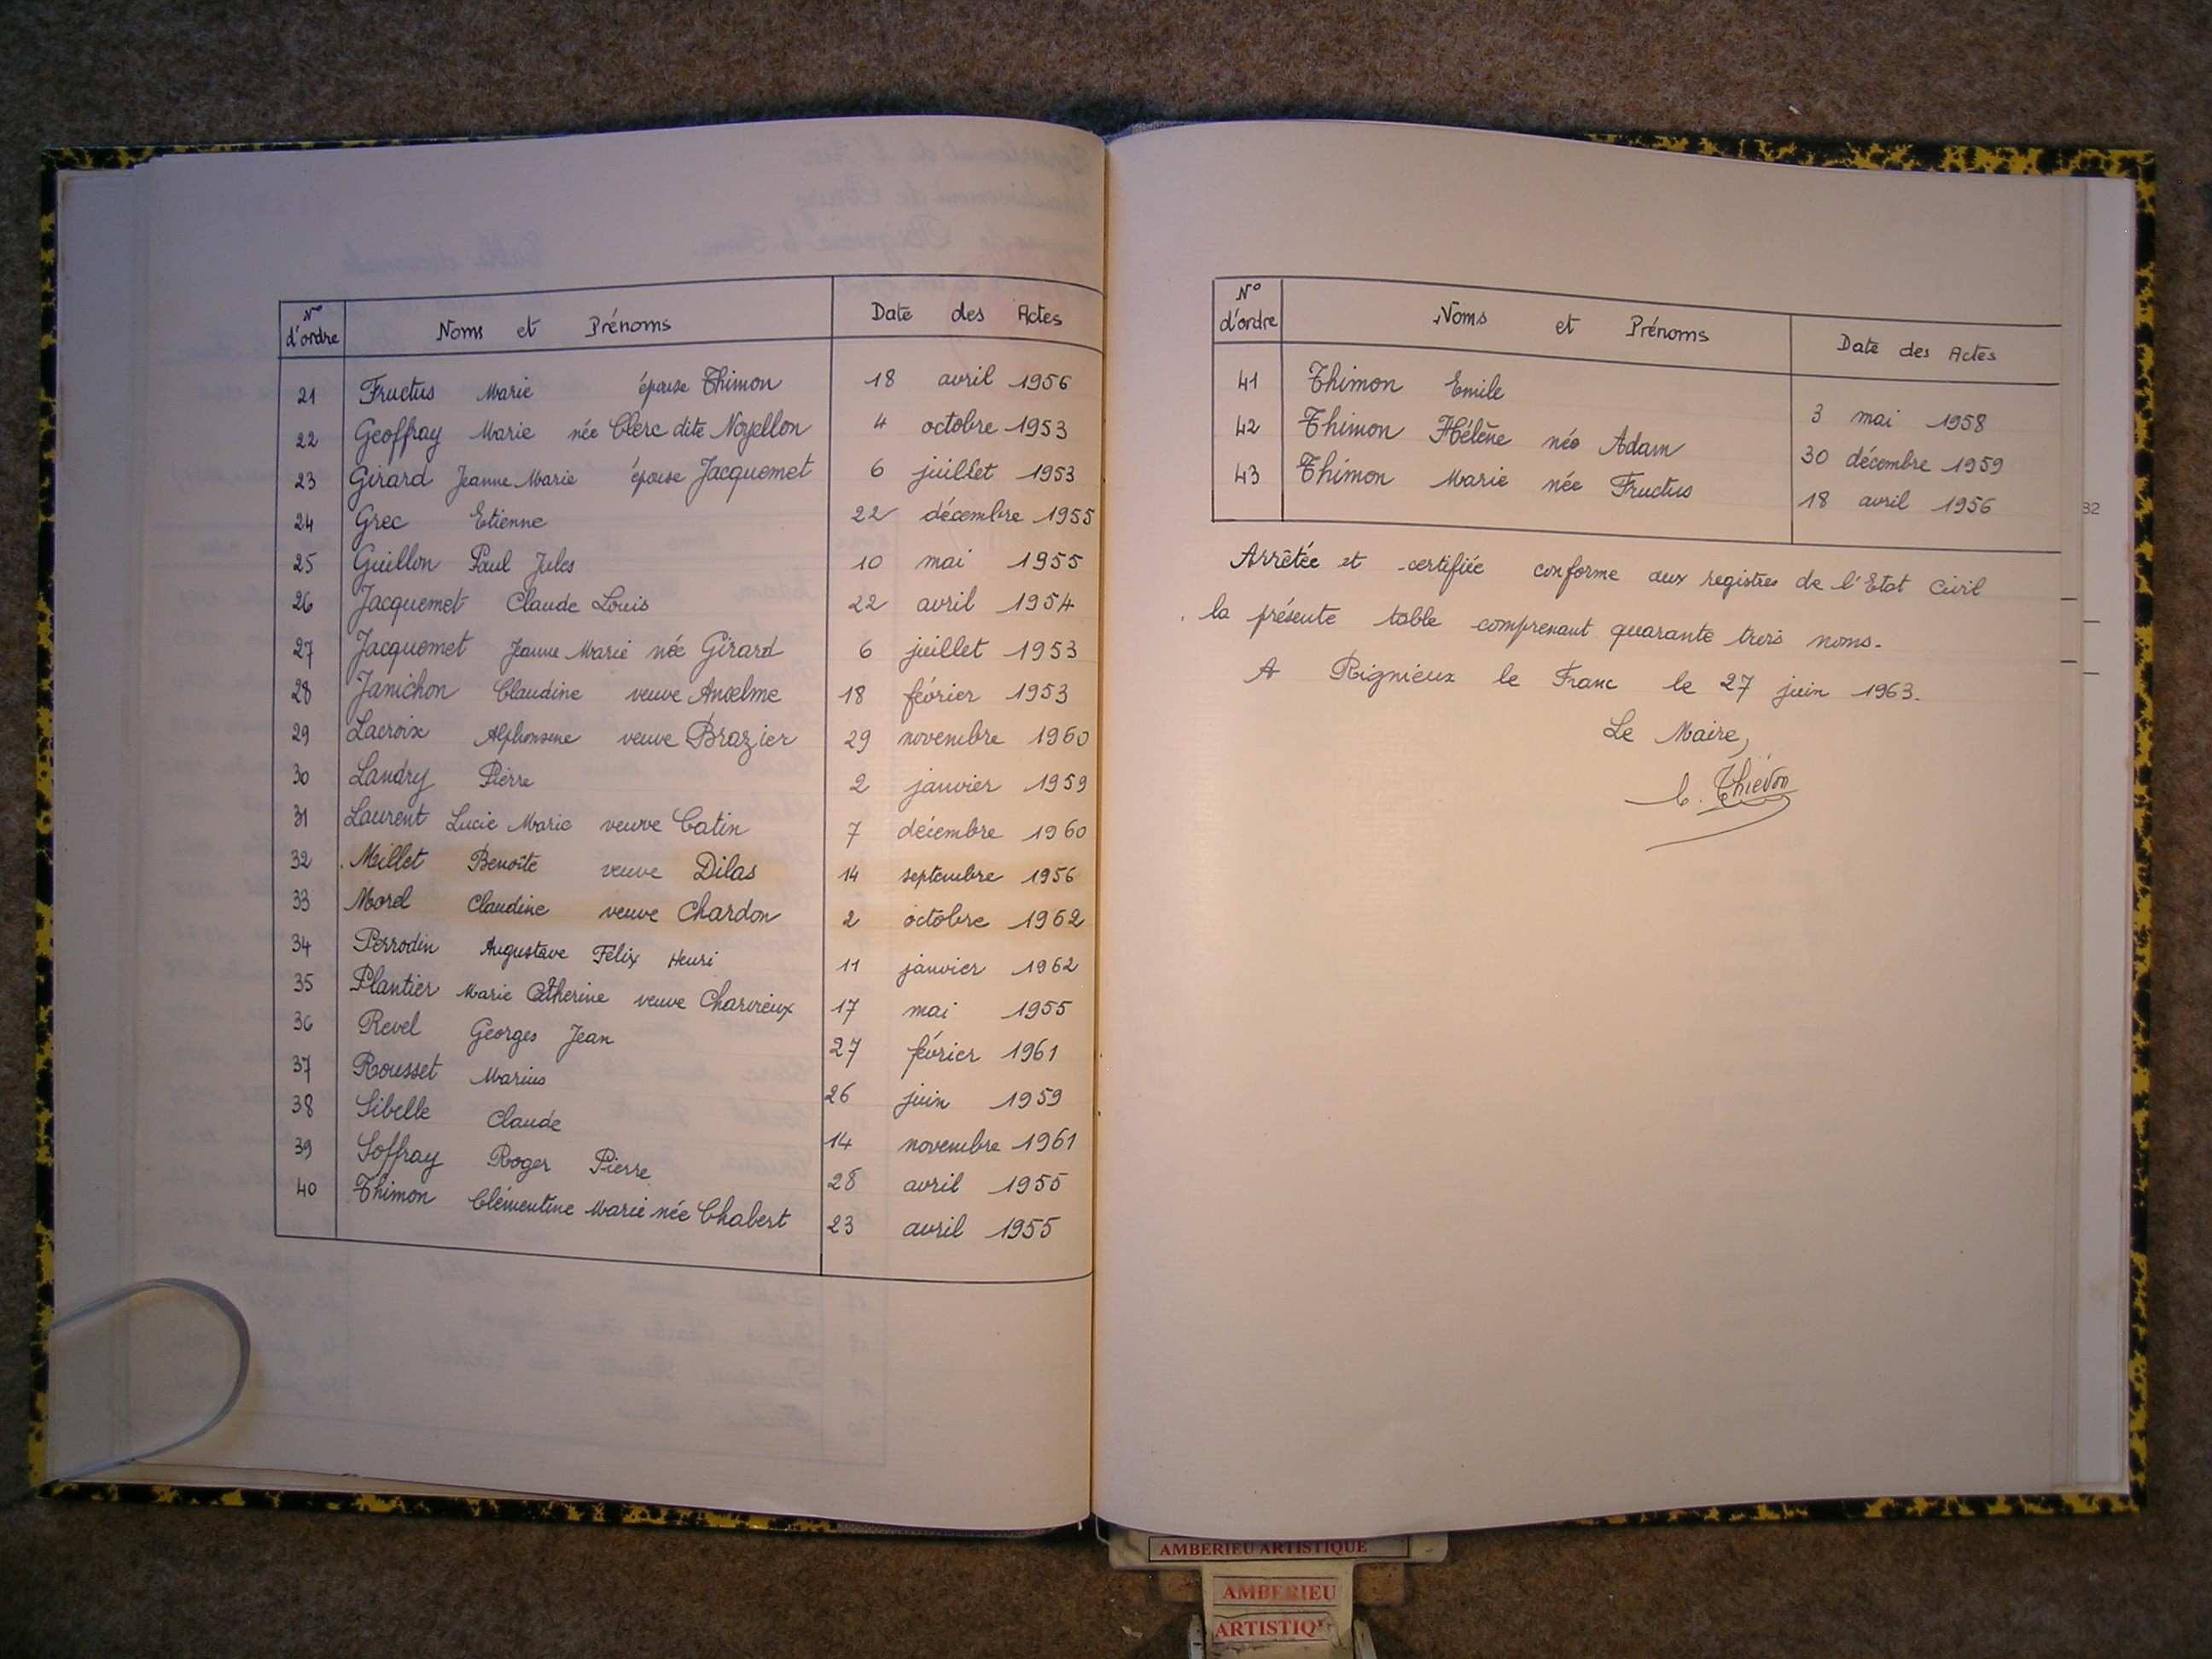 N° d'ordre Noms et Prénoms Date des Actes
21 Fructus Marie épouse Thimon 18 avril 1956
22 Geoffray Marie née Clerc dite Noyellon 4 octobre 1953
23 Girard Jeanne Marie épouse Jacquemet 6 juillet 1953
24 Grec Etienne 22 décembre 1955
25 Guillon Paul Jules 10 mai 1955
26 Jacquemet Claude Louis 22 avril 1954
27 Jacquemet Jeanne Marie née Girard 6 juillet 1953
28 Janichon Claudine veuve Anselme 18 février 1953
29 Lacroix Alphonsine veuve Brazier 29 novembre 1960
30 Landry Pierre 2 janvier 1959
31 Laurent Lucie Marie veuve Catin 7 décembre 1960
32 Millet Benoîte veuve Dilas 14 septembre 1956
33 Morel Claudine veuve Chardon 2 octobre 1962
34 Perrodin Augustave Félix Henri 11 janvier 1962
35 Plantier Marie Catherine veuve Charvieux 17 mai 1955
36 Revel Georges Jean 27 février 1961
37 Rousset Marius 26 juin 1959
38 Sibelle Claude 14 novembre 1961
39 Soffray Roger Pierre 28 avril 1955
40 Thimon Clémentine Marie née Chabert 23 avril 1955
N° d'ordre Noms et Prénoms Date des Actes
41 Thimon Emile 3 mai 1958
42 Thimon Hélène née Adam 30 décembre 1959
43 Thimon Marie née Fructus 18 avril 1956
Arrêtée et certifiée conforme aux registres de l'Etat Civil
la présente table comprenant quarante trois noms.
A Rignieux le Franc le 27 juin 1963.
Le Maire,
C. Thiévon
82
AMBERIEU ARTISTIQUE
AMBERIEU
ARTISTIQU